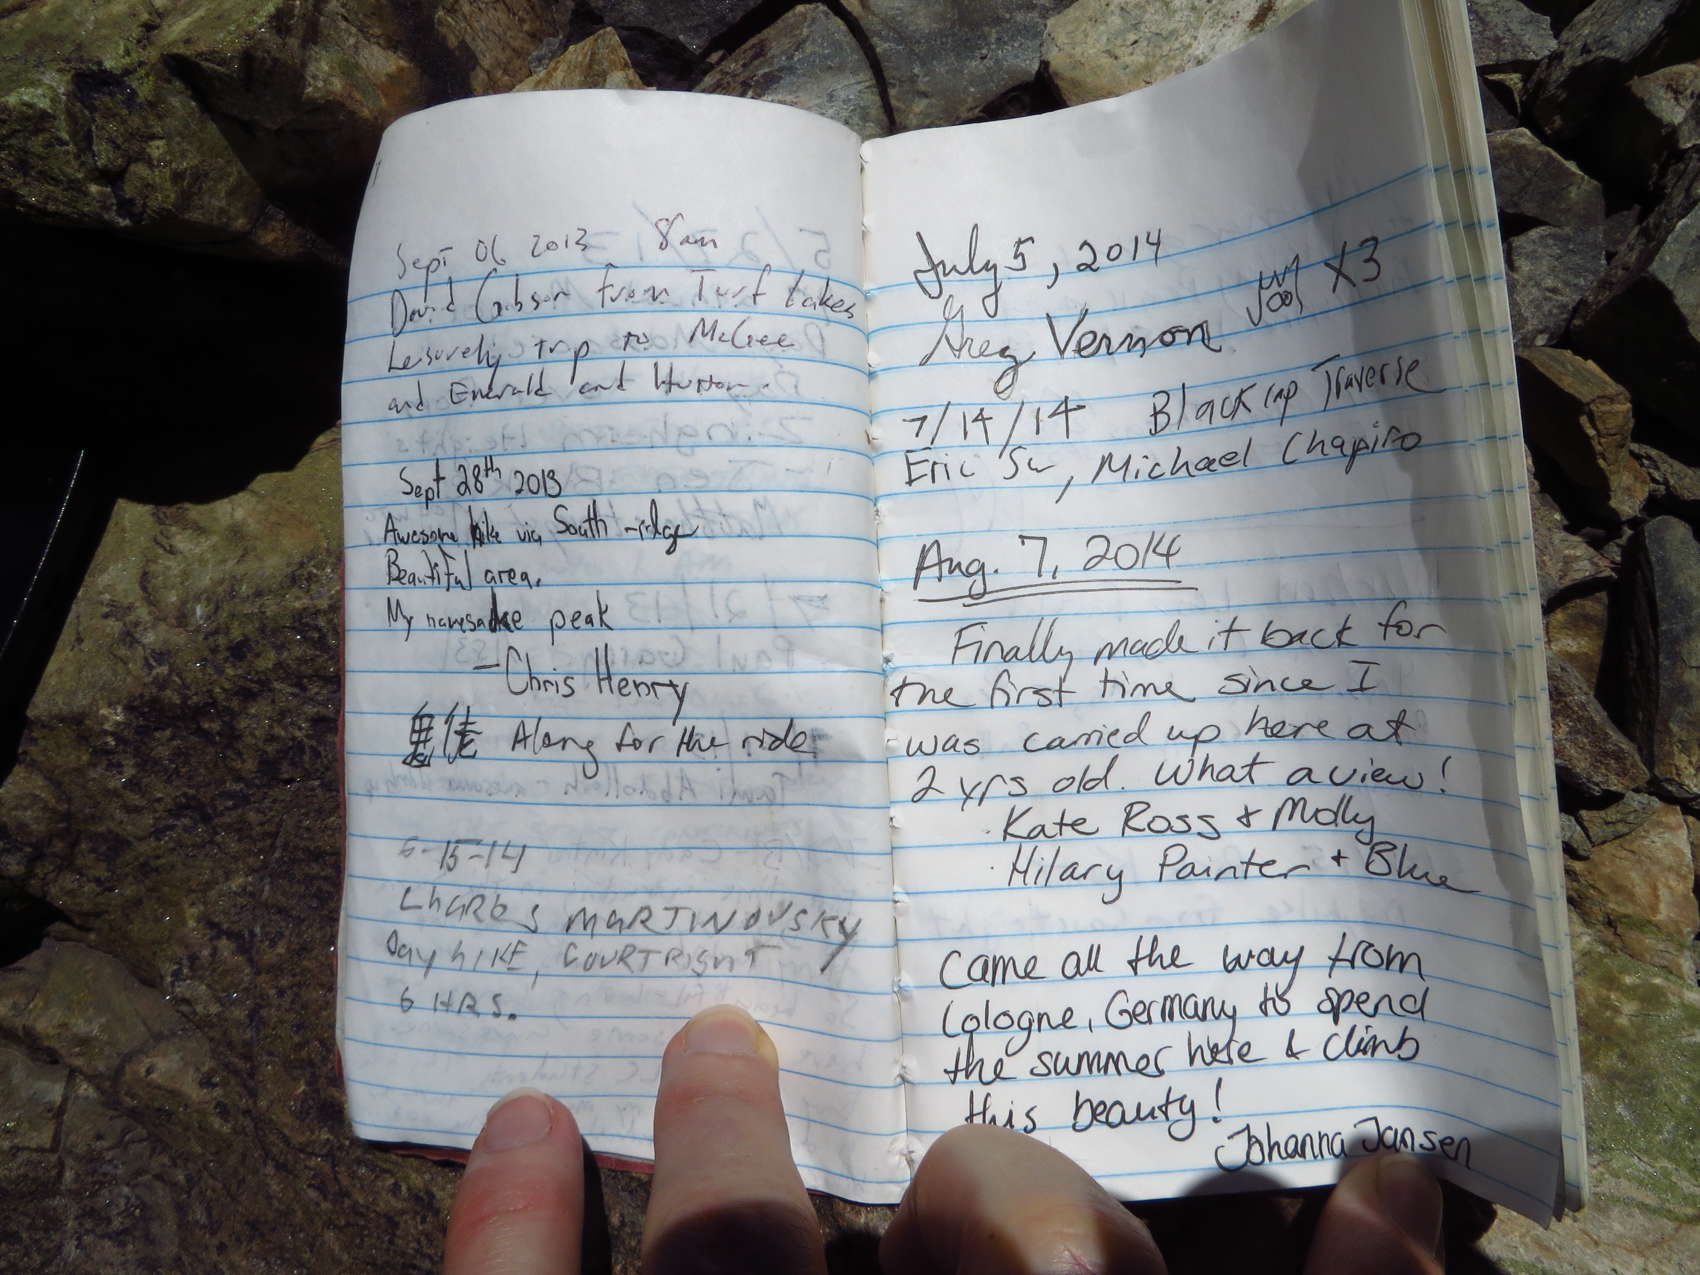 Sept 06 2013 8am
David Gibson from Turf Lakes
Leisurely trip to McGee
and Emerald and Hutton.
Sept 28th 2013
Awesome hike via South ridge
Beautiful area.
My namesake peak
- Chris Henry
Along for the ride.
6-15-14
CHARLES MARTINOVSKY
Day hIKE, COURTRIGHT
6 HRS.
July 5, 2014
Greg Vernon X3
7/14/14 Blackcap Traverse
Eric Su, Michael Chapiro
Aug. 7, 2014
Finally made it back for
the first time since I
was carried up here at
2 yrs old. What a view!
Kate Ross & Molly
Hilary Painter + Blue
Came all the way from
Cologne, Germany to spend
the summer here & climb
this beauty!
Johanna Jansen